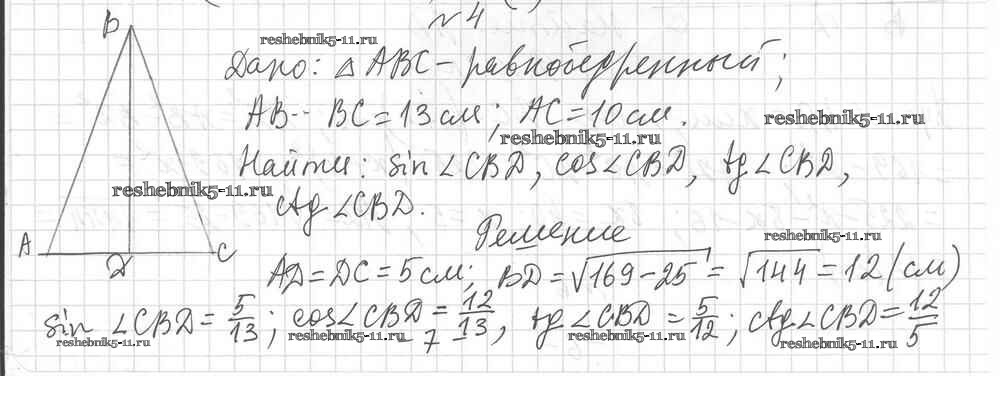 №4
B
reshebnik5-11.ru
Дано: △ABC - равнобедренный;
AB = BC = 13 см; AC = 10 см.
reshebnik5-11.ru
reshebnik5-11.ru
Найти: sin ∠CBD, cos ∠CBD, tg ∠CBD,
reshebnik5-11.ru
ctg ∠CBD.
Решение
reshebnik5-11.ru
A
D
C
AD = DC = 5 см; BD = √169-25 = √144 = 12 (см)
sin ∠CBD = 5/13; cos ∠CBD = 12/13, tg ∠CBD = 5/12; ctg ∠CBD = 12/5
reshebnik5-11.ru
reshebnik5-11.ru
7
reshebnik5-11.ru
reshebnik5-11.ru